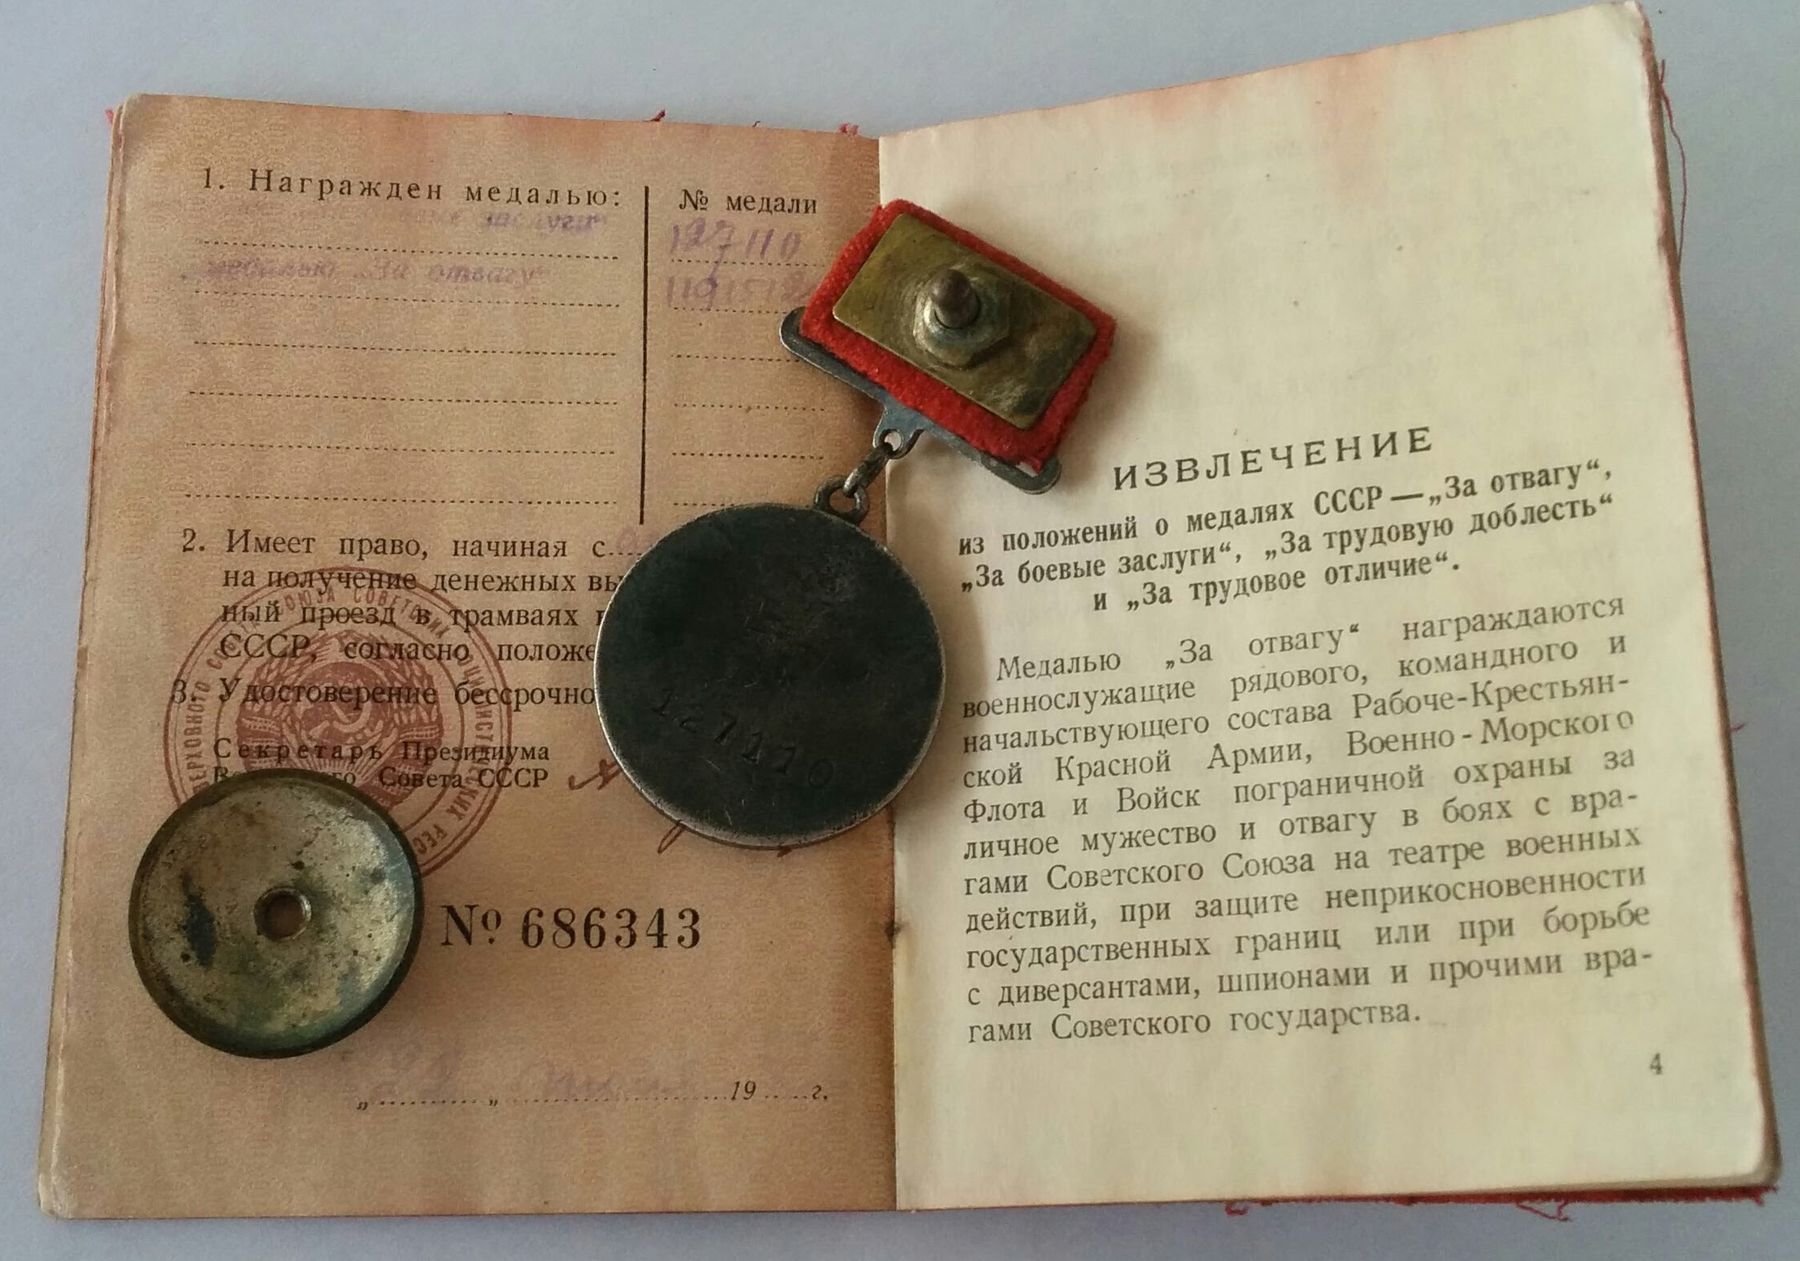 1. Награжден медалью:
№ медали
заслуги"
127110
медалью „За отвагу"
2. Имеет право, начиная с
на получение денежных вы
ный проезд в трамваях
СССР, согласно положе
3. Удостоверение бессрочно
Секретарь Президиума
Совета СССР
№ 686343
„ „ 19 г.
127110
ИЗВЛЕЧЕНИЕ
из положений о медалях СССР — „За отвагу“,
„За боевые заслуги“, „За трудовую доблесть“
и „За трудовое отличие“.
Медалью „За отвагу“ награждаются
военнослужащие рядового, командного и
начальствующего состава Рабоче-Крестьян-
ской Красной Армии, Военно-Морского
Флота и Войск пограничной охраны за
личное мужество и отвагу в боях с вра-
гами Советского Союза на театре военных
действий, при защите неприкосновенности
государственных границ или при борьбе
с диверсантами, шпионами и прочими вра-
гами Советского государства.
4